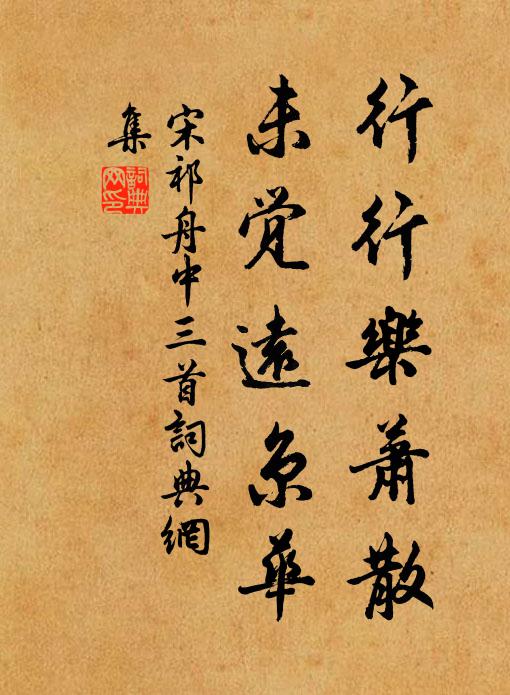 行行樂蕭散
未覚遠京華
宋祁舟中三首詞典網
集
詞典
网印